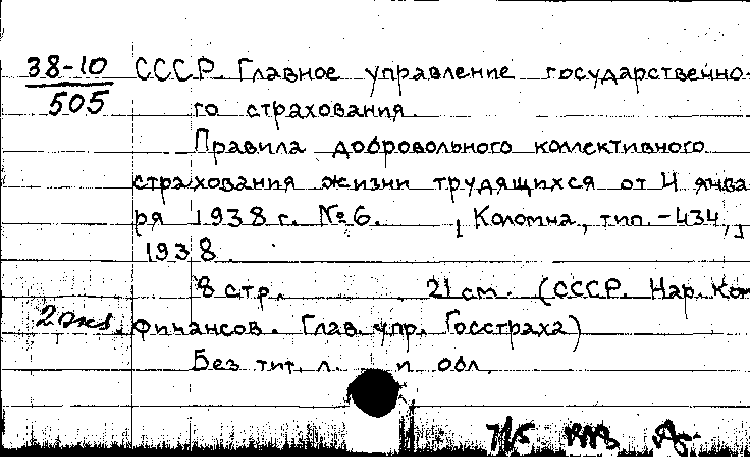 38-10 СССР. Главное управление государственно-
505 го страхования.
Правила добровольного коллективного
страхования жизни трудящихся от 4 янва
ря 1938 г. № 6. [Коломна, тип. - 434,]
1938.
8 стр. 21 см. (СССР. Нар. Ком
2 экз. финансов. Глав. упр. Госстраха)
Без тит. л. и обл.